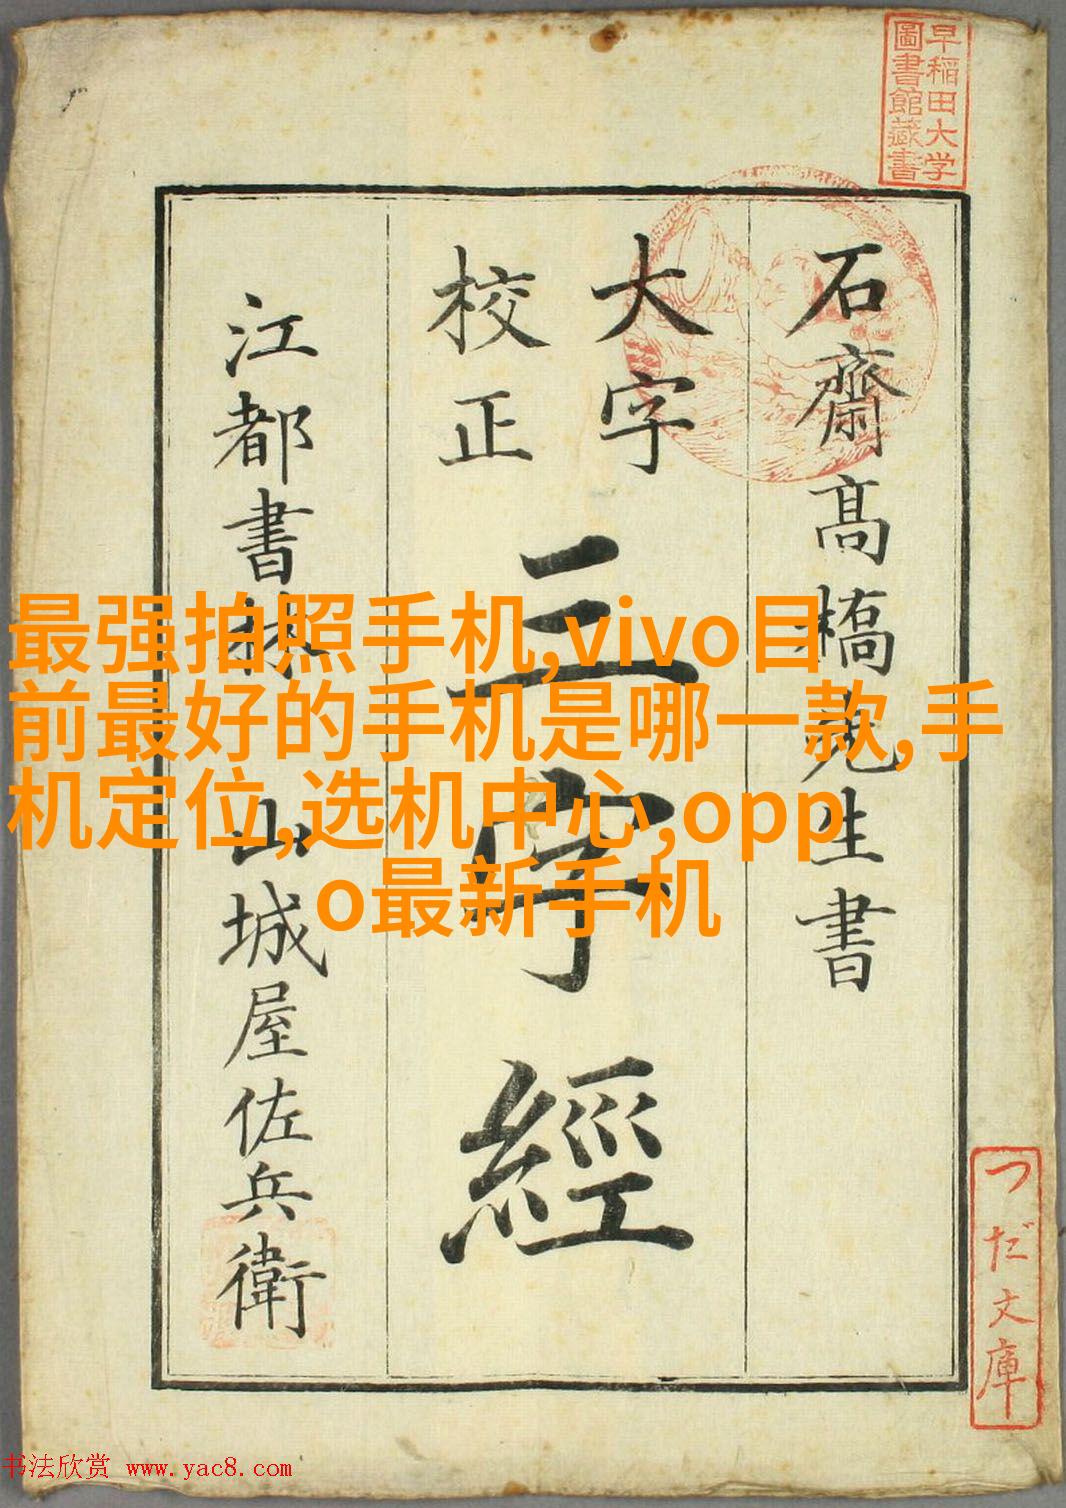 早稲田大学
圖書館藏書
石齋高橋先生書
大字
校正
三字經
江都書林 山城屋佐兵衛
つだ文庫
最强拍照手机,vivo目
前最好的手机是哪一款,手
机定位,选机中心,opp
o最新手机
书法欣赏 www.yac8.com